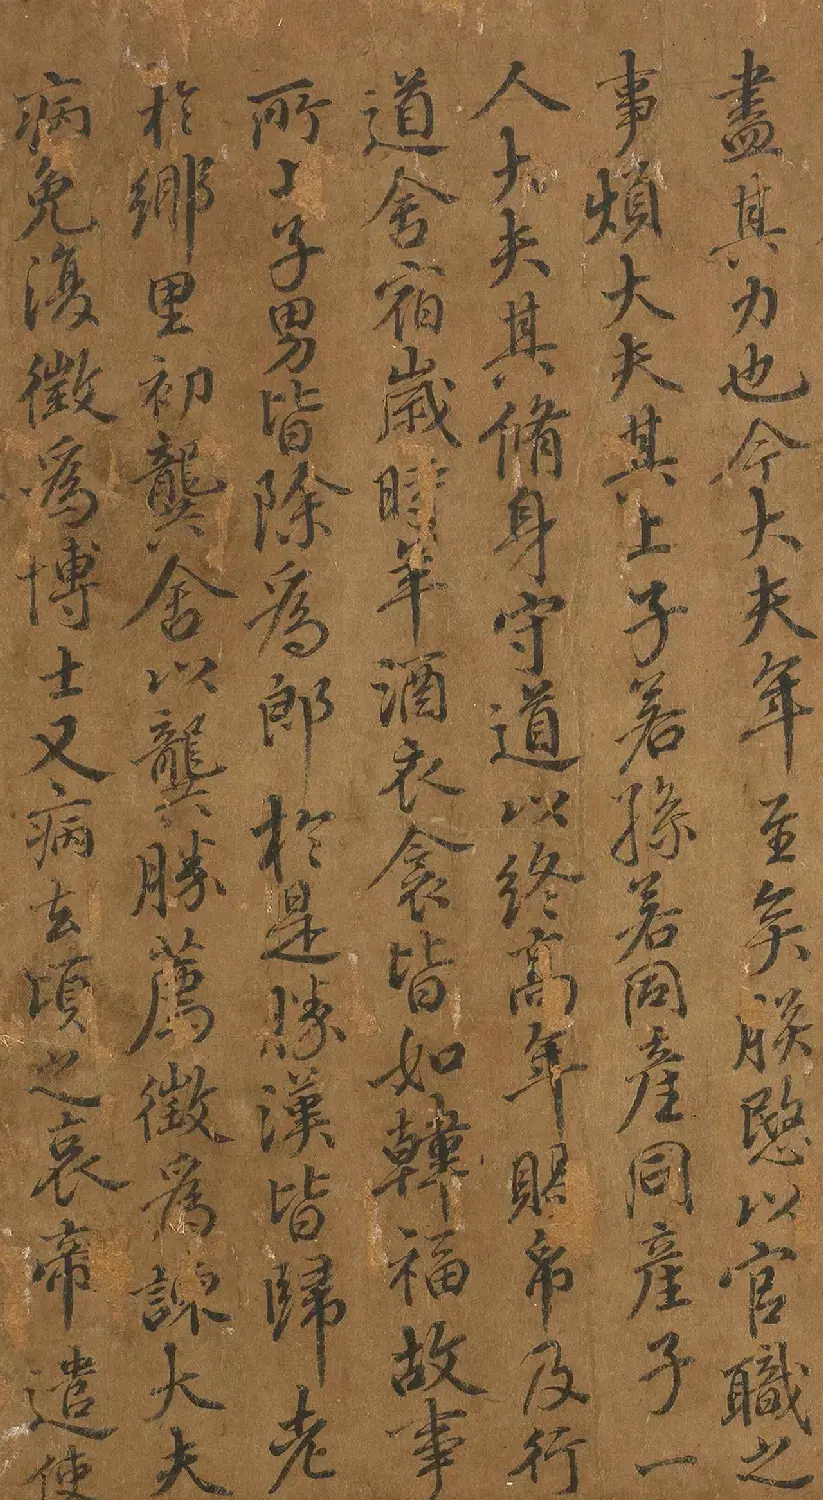 盡其力也今大夫年至矣朕愍以官職之
事煩大夫其上子若孫若同產同產子一
人大夫其脩身守道以終高年賜帛及行
道舍宿歲時羊酒衣衾皆如韓福故事
所上子男皆除為郎於是勝漢皆歸老
於鄉里初龔舍以龔勝薦徵為諫大夫
病免復徵為博士又病去頃之哀帝遣使